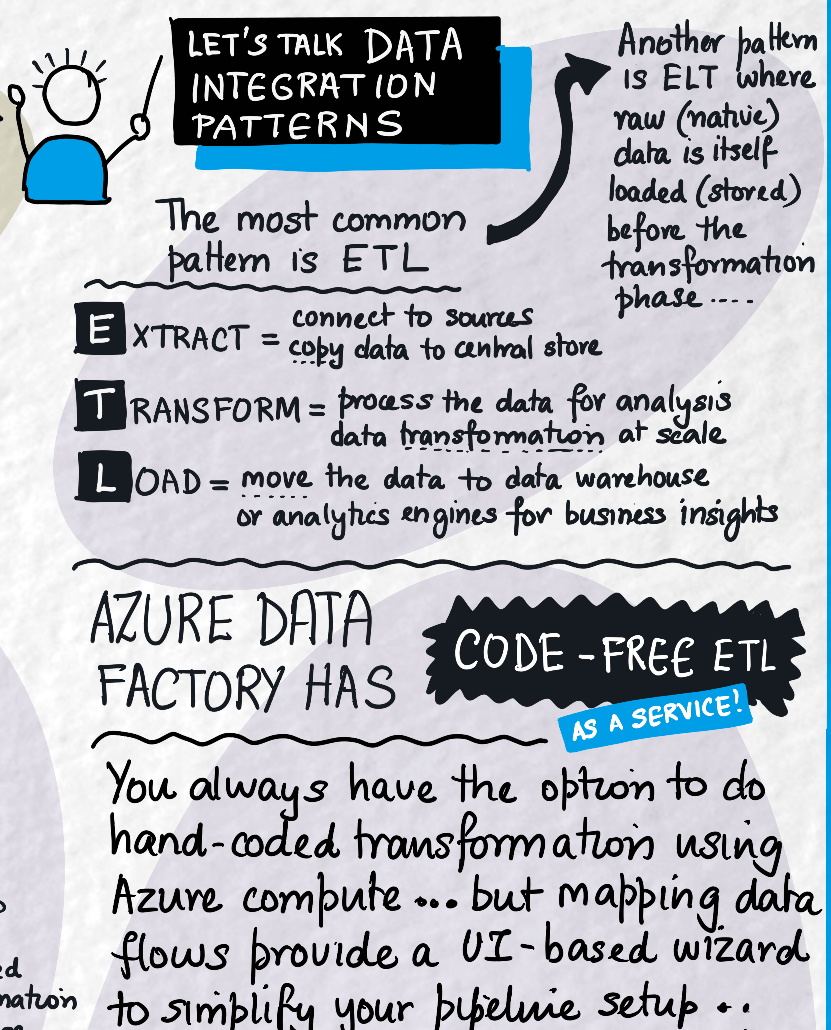 LET'S TALK DATA
INTEGRATION
PATTERNS
The most common
pattern is ETL
Another pattern
is ELT where
raw (native)
data is itself
loaded (stored)
before the
transformation
phase ....
EXTRACT = connect to sources
copy data to central store
TRANSFORM = process the data for analysis
data transformation at scale
LOAD = move the data to data warehouse
or analytics engines for business insights
AZURE DATA
FACTORY HAS
CODE-FREE ETL
AS A SERVICE!
You always have the option to do
hand-coded transformation using
Azure compute ... but mapping data
flows provide a UI-based wizard
to simplify your pipeline setup ..